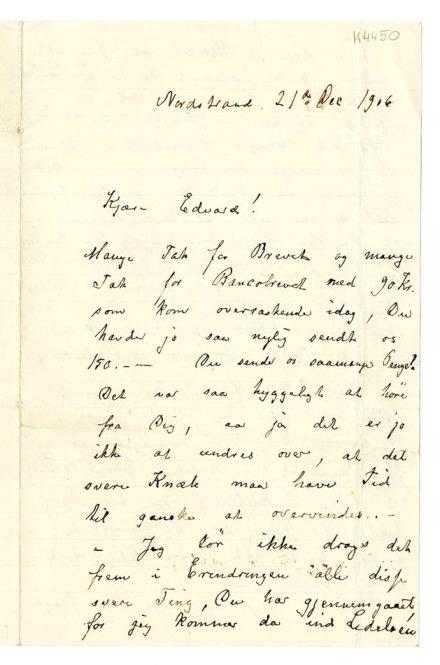 K4450
Nordstrand 21de Dec 1906
Kjære Edvard!
Mange Tak for Brevet og mange
Tak for Bancobrevet med 90 Kr.
som kom overraskende idag, Du
havde jo saa nylig sendt os
150.-— Du sender os saamange Penge!
Det var saa hyggeligt at høre
fra Dig, aa ja det er jo
ikke at undres over, at det
svere Knæk maa have Tid
til ganske at overvindes. . -
- Jeg tör ikke drage det
frem i Erindringen alle disse
svere Ting, Du har gjennemgaaet
for jeg kommer da ind